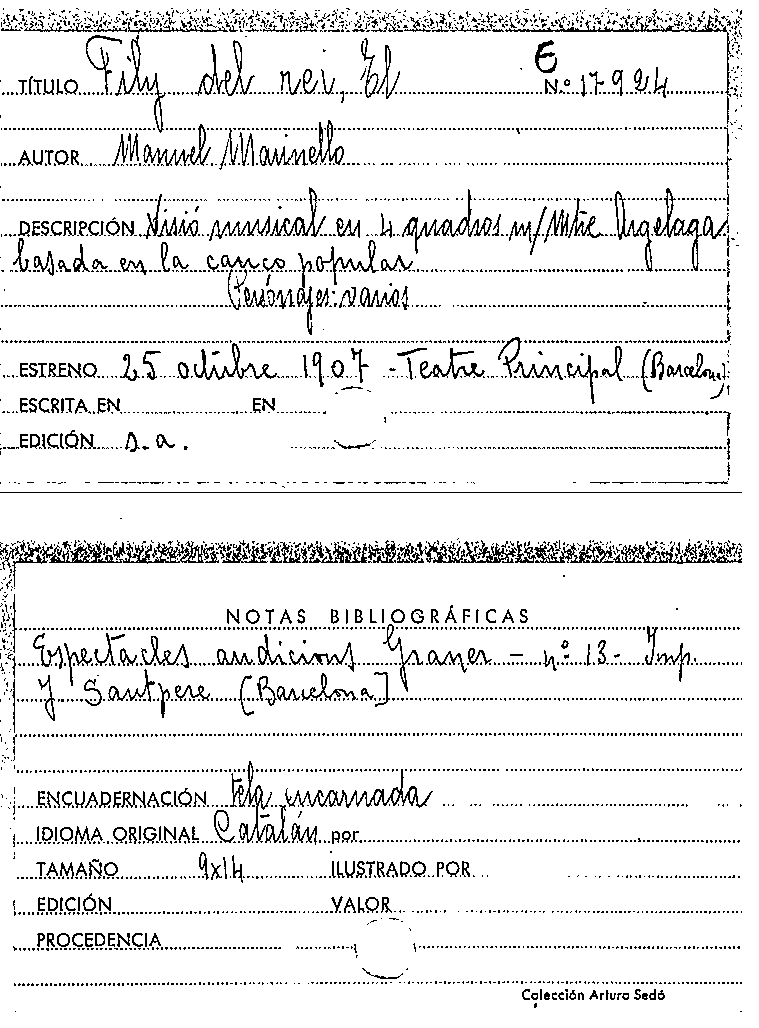 E
TÍTULO Fily del rei, El N.º 17924
AUTOR Manuel Marinello
DESCRIPCIÓN Visió musical en 4 quadros m/Mtre Argelaga
basada en la canço popular
Personajes: varios
ESTRENO 25 octubre 1907 - Teatre Principal (Barcelona)
ESCRITA EN EN
EDICIÓN s.a.
NOTAS BIBLIOGRÁFICAS
Espectacles audicions Graner - nº 13 - Imp.
J Santpere (Barcelona)
ENCUADERNACIÓN tela encarnada
IDIOMA ORIGINAL Catalán por
TAMAÑO 9x14 ILUSTRADO POR
EDICIÓN VALOR
PROCEDENCIA
Colección Arturo Sedó